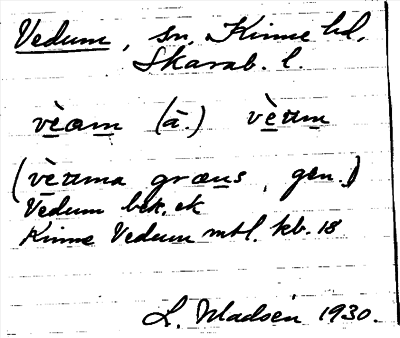 Vedum, sn, Kinne hd,
Skarab. l.
vèam (ā.) vèƞm
(vèƞma græns, gen.)
Vedum bek. ek
Kinne Vedum mtl. kb. 18
L. Madsén 1930.